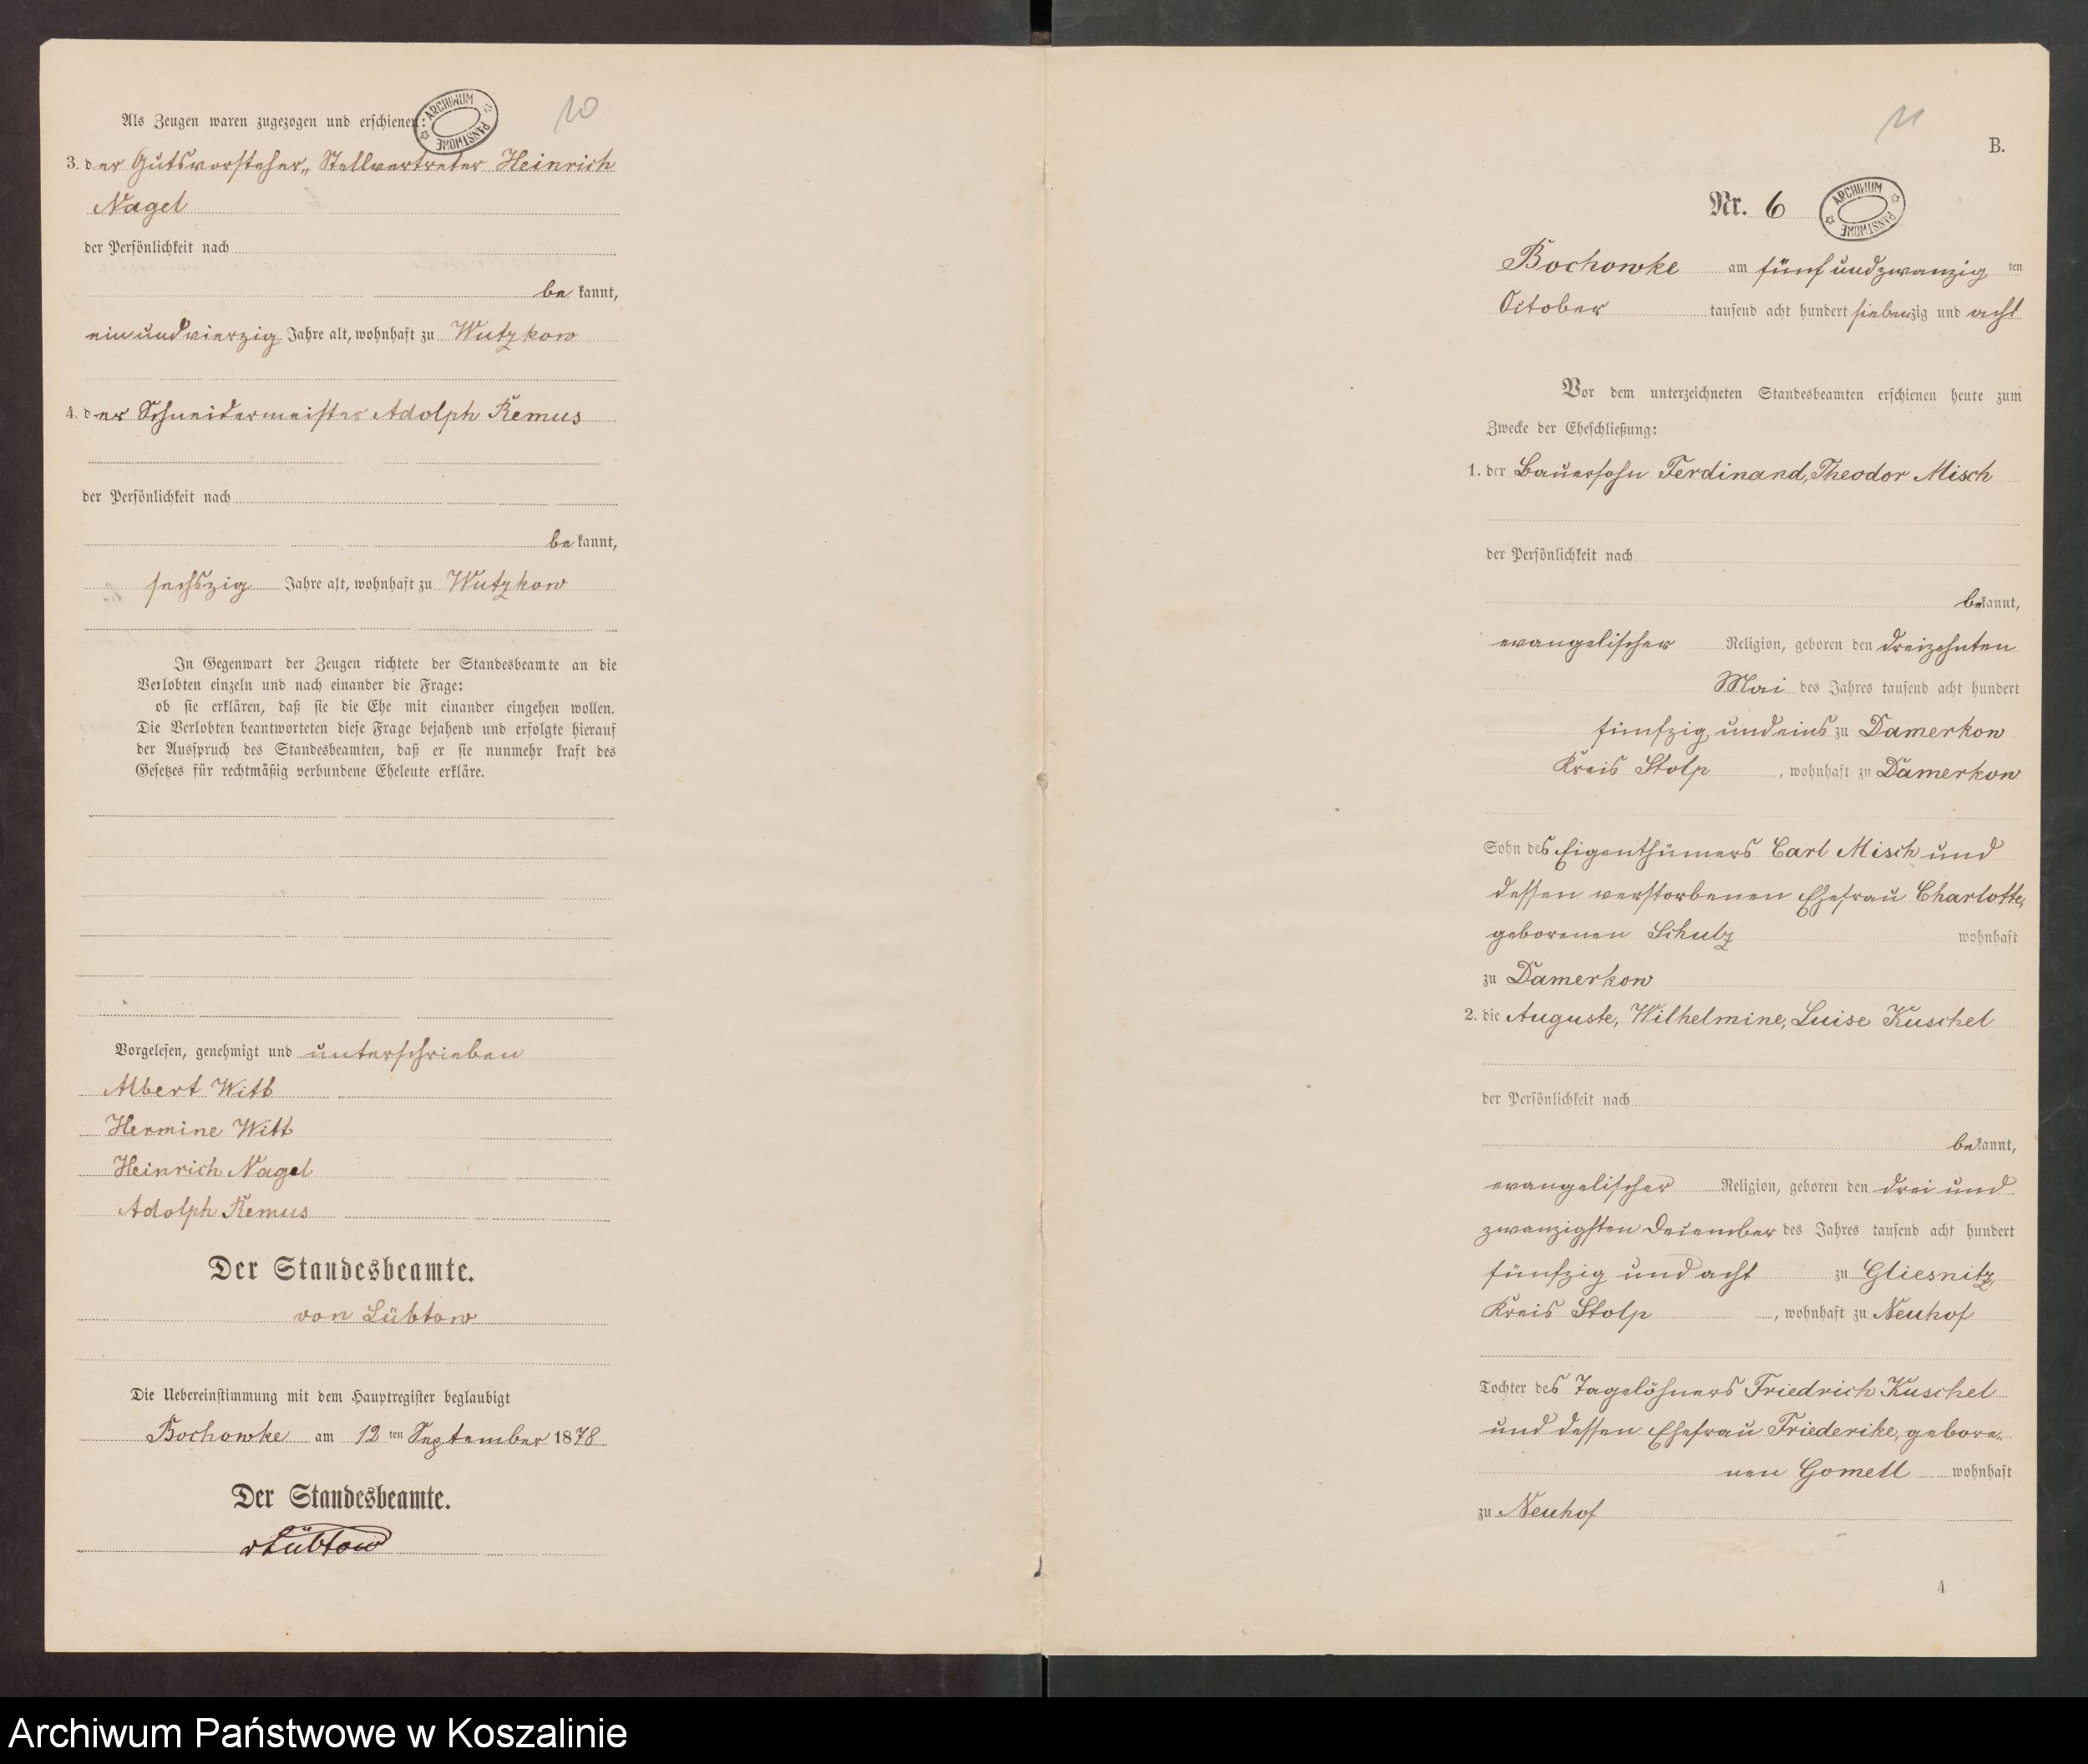 Als Zeugen waren zugezogen und erschienen:
ARCHIWUM PAŃSTWOWE
10
3. der Gutsvorsteher„ Stellvertreter Heinrich
Nagel
der Persönlichkeit nach
be kannt,
einundvierzig Jahre alt, wohnhaft zu Wutzkow
4. der Schneidermeister Adolph Remus
der Persönlichkeit nach
be kannt,
sechszig Jahre alt, wohnhaft zu Wutzkow
In Gegenwart der Zeugen richtete der Standesbeamte an die
Verlobten einzeln und nach einander die Frage:
ob sie erklären, daß sie die Ehe mit einander eingehen wollen.
Die Verlobten beantworteten diese Frage bejahend und erfolgte hierauf
der Ausspruch des Standesbeamten, daß er sie nunmehr kraft des
Gesetzes für rechtmäßig verbundene Eheleute erkläre.
Vorgelesen, genehmigt und unterschrieben
Albert Witt
Hermine Witt
Heinrich Nagel
Adolph Remus
Der Standesbeamte.
von Lübtow
Die Uebereinstimmung mit dem Hauptregister beglaubigt
Bochowke am 12 ten September 1878
Der Standesbeamte.
vLübtow
11
B.
Nr. 6
ARCHIWUM PAŃSTWOWE
Bochowke am fünfundzwanzig ten
October tausend acht hundert siebenzig und acht
Vor dem unterzeichneten Standesbeamten erschienen heute zum
Zwecke der Eheschließung:
1. der Bauersohn Ferdinand, Theodor Misch
der Persönlichkeit nach
bekannt,
evangelischer Religion, geboren den dreizehnten
Mai des Jahres tausend acht hundert
fünfzig und eins zu Damerkow
Kreis Stolp, wohnhaft zu Damerkow
Sohn des Eigenthümers Carl Misch und
dessen verstorbenen Ehefrau Charlotte,
geborenen Schulz wohnhaft
zu Damerkow
2. die Auguste, Wilhelmine, Luise Kuschel
der Persönlichkeit nach
bekannt,
evangelischer Religion, geboren den drei und
zwanzigsten December des Jahres tausend acht hundert
fünfzig und acht zu Gliesnitz,
Kreis Stolp, wohnhaft zu Neuhof
Tochter des Tagelöhners Friedrich Kuschel
und dessen Ehefrau Friederike, gebore-
nen Gometl wohnhaft
zu Neuhof
4
Archiwum Państwowe w Koszalinie